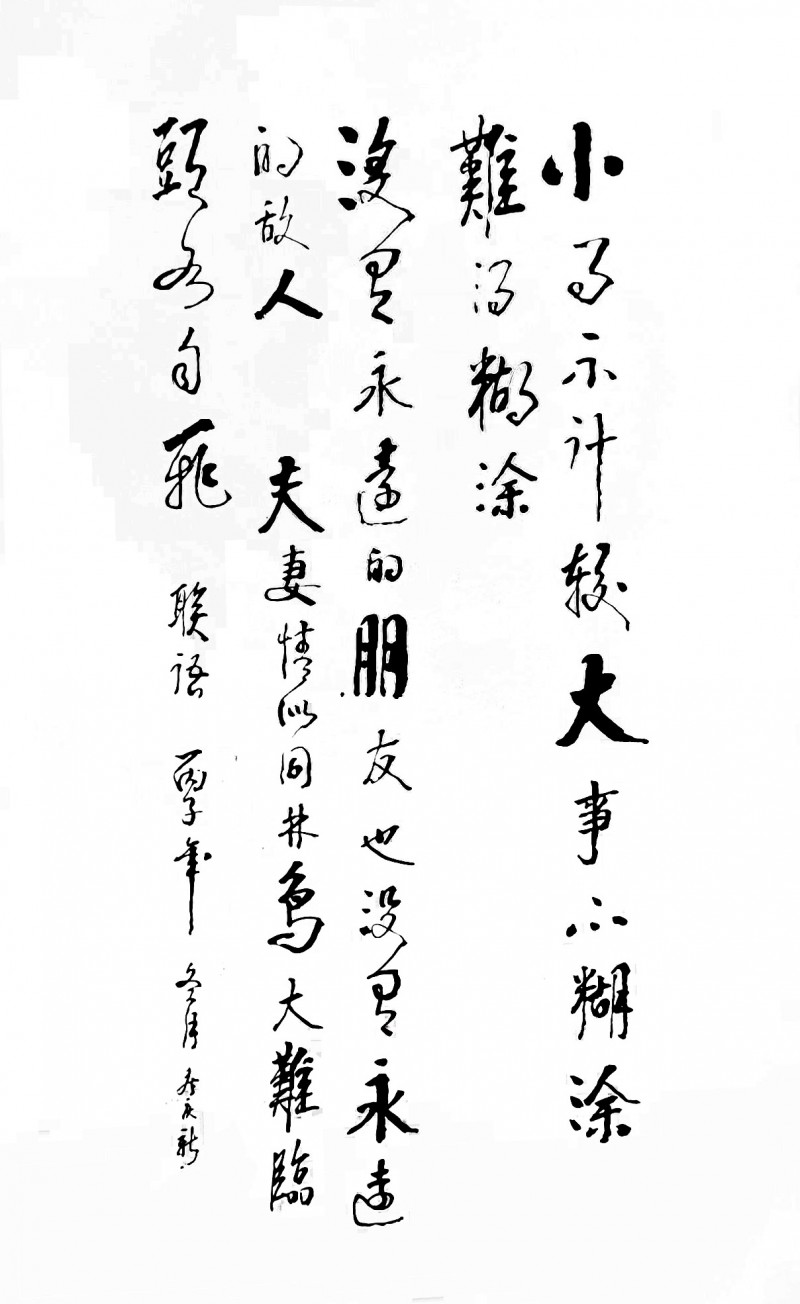 小事不计较大事不糊涂
難得糊涂
没有永遠的朋友也没有永遠
的敌人 夫妻情似同林鸟大難臨
頭各自飛 联语 丙子年 冬月